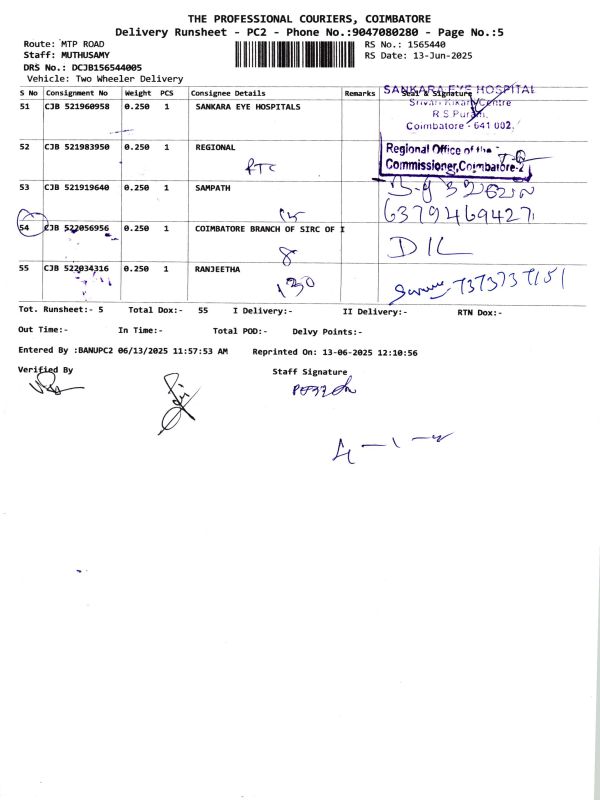 THE PROFESSIONAL COURIERS, COIMBATORE
Delivery Runsheet - PC2 - Phone No.:9047080280 - Page No.:5
Route: MTP ROAD
Staff: MUTHUSAMY
DRS No.: DCJB156544005
Vehicle: Two Wheeler Delivery
RS No.: 1565440
RS Date: 13-Jun-2025
S No Consignment No Weight PCS Consignee Details Remarks Seal & Signature
51 CJB 521960958 0.250 1 SANKARA EYE HOSPITALS
SANKARA EYE HOSPITAL
Centre
R.S.Puram,
Coimbatore - 641 002.
52 CJB 521983950 0.250 1 REGIONAL
RTC
Regional Office of the
Commissioner,Coimbatore-2
53 CJB 521919640 0.250 1 SAMPATH
6379469427
54 CJB 522056956 0.250 1 COIMBATORE BRANCH OF SIRC OF I
8
55 CJB 522034316 0.250 1 RANJEETHA
130
Tot. Runsheet:- 5 Total Dox:- 55 I Delivery:- II Delivery:- RTN Dox:-
Out Time:- In Time:- Total POD:- Delvy Points:-
Entered By :BANUPC2 06/13/2025 11:57:53 AM Reprinted On: 13-06-2025 12:10:56
Verified By Staff Signature